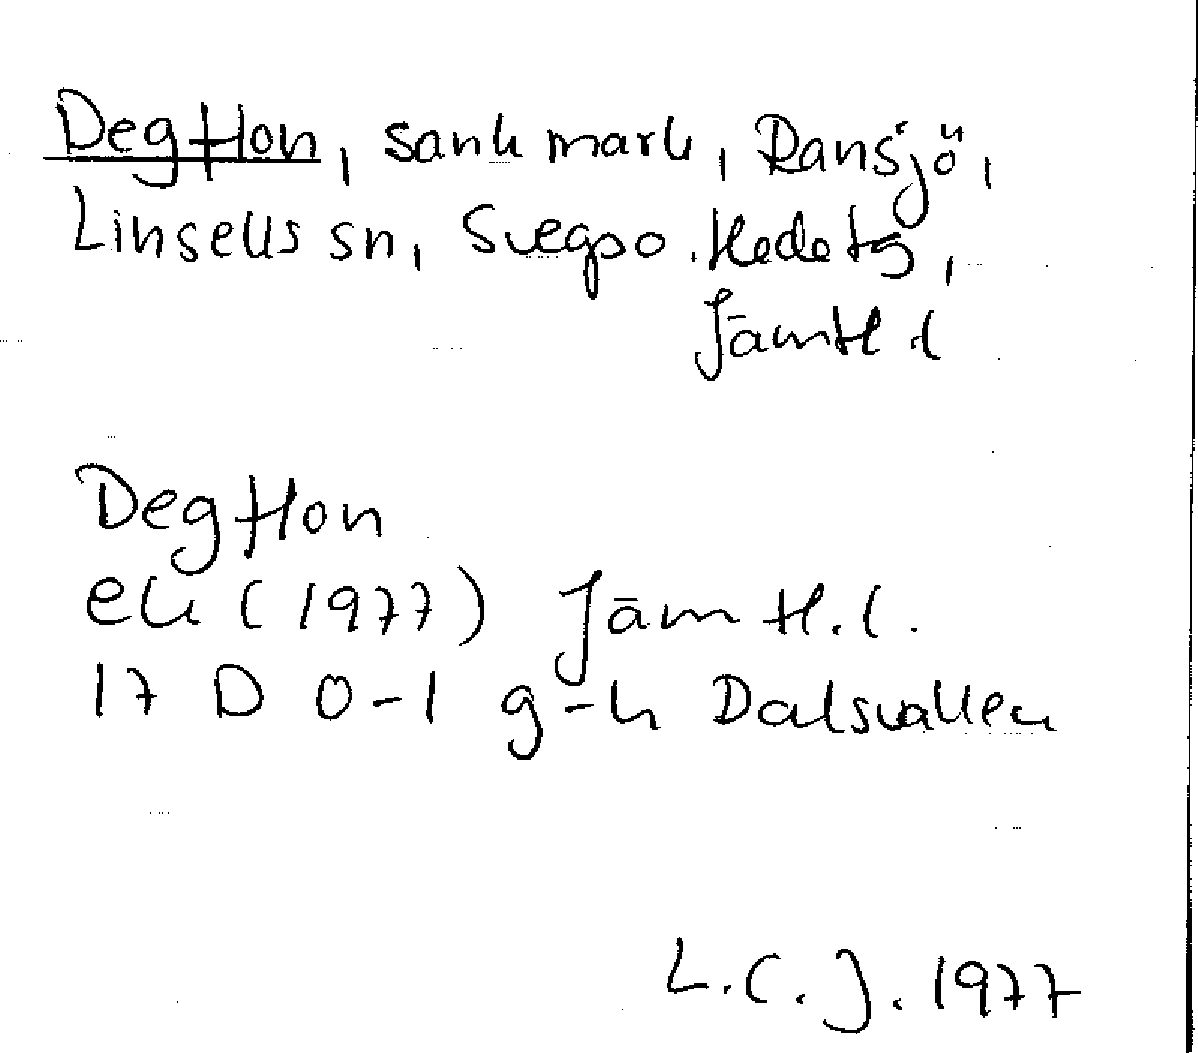 Degtjon, sank mark, Ransjö,
Linsells sn, Svegs o. Hede tg,
Jämtl. l
Degtjon
ek (1977) Jämtl. l.
17 D 0-1 g-h Dalsvallen
L.C.J. 1977